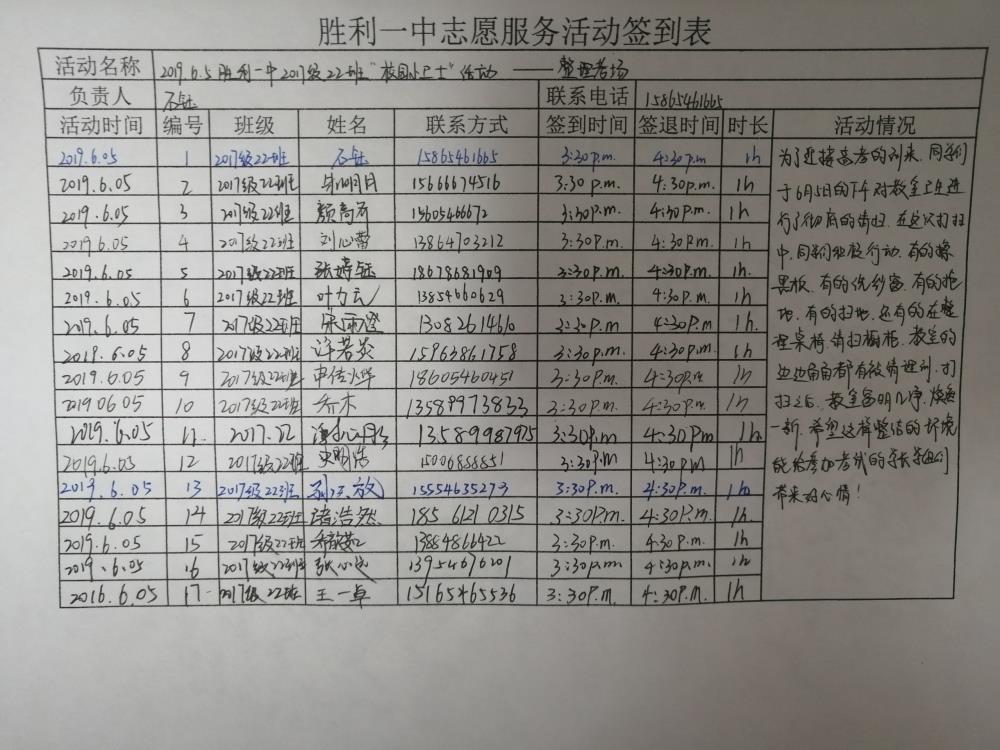 胜利一中志愿服务活动签到表
活动名称 2019.6.5胜利一中2017级22班"校园小卫士"活动 —— 整理考场
负责人 石钰 联系电话 15865461665
活动时间 编号 班级 姓名 联系方式 签到时间 签退时间 时长 活动情况
2019.6.05 1 2017级22班 石钰 15865461665 3:30p.m. 4:30p.m 1h
2019.6.05 2 2017级22班 朱明月 15666674516 3:30 p.m. 4:30p.m. 1h
2019.6.05 3 2017级22班 颜高 15605466672 3:30p.m. 4:30P.m. 1h
2019.6.05 4 2017级22班 刘心蕾 13864703212 3:30P.m. 4:30P.m. 1h
2019.6.05 5 2017级22班 张婷钰 18678681909 3:30p.m. 4:30p.m. 1h.
2019.6.05 6 2017级22班 叶力云 13854660629 3:30p.m. 4:30p.m. 1h
2019.6.05 7 2017级22班 宋雨澄 13082614610 3:30p.m 4:30p.m 1h.
2019.6.05 8 2017级22班 许若炎 15963861758 3:30P.m. 4:30P.m. 1h
2019.6.05 9 2017级22班 申佳烨 18605460451 3:30p.m. 4:30p.m. 1h
2019 06.05 10 2017级22班 乔木 13589973833 3:30p.m. 4:30p.m. 1h
2019.6.05 11. 2017.22 13589987975 3:30p.m 4:30Pm 1h.
2019.6.05 12 2017级22班 史明浩 15006888851 3:30P.m 4:30P.m 1h
2019.6.05 13 2017级22班 15554635273 3:30P.m. 4:30P.m. 1h
2019.6.05 14 2017级22班 诸浩然 185 6121 0315 3:30P.m. 4:30P.m. 1h.
2019.6.05 15 2017级22班 13884866422 3:30P.m. 4:30 P.m. 1h
2019.6.05 16 2017级22班 张心 13954676201 3:30p.m 4:30p.m. 1h
2016.6.05 17 2017级22班 王一卓 15165465536 3:30P.m. 4:30P.m. 1h
为了迎接高考的到来，同学们
于6月5日的下午对教室卫生进
行了彻底的清扫．在这次打扫
中，同学们积极行动．有的擦
黑板．有的洗纱窗．有的拖
地．有的扫地．还有的在整
理桌椅．清扫橱柜．教室的
边边角角都有被清理到．打
扫之后．教室窗明几净．焕然
一新．希望这样整洁的环境
能给参加考试的学长学姐们
带来好心情！